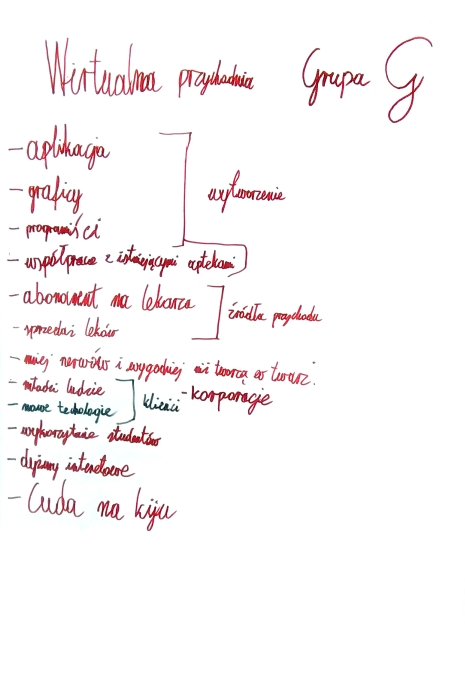 Wirtualna przychodnia Grupa G
- aplikacja
- graficy
wytworzenie
- programiści
- współpraca z istniejącymi aptekami
- abonament na lekarza
źródła przychodu
- sprzedaż leków
- mniej nerwów i wygodniej niż twarzą w twarz.
- młodzi ludzie
klienci - korporacje
- nowe technologie
- wykorzystanie studentów
- dyżury internetowe
- Cuda na kiju